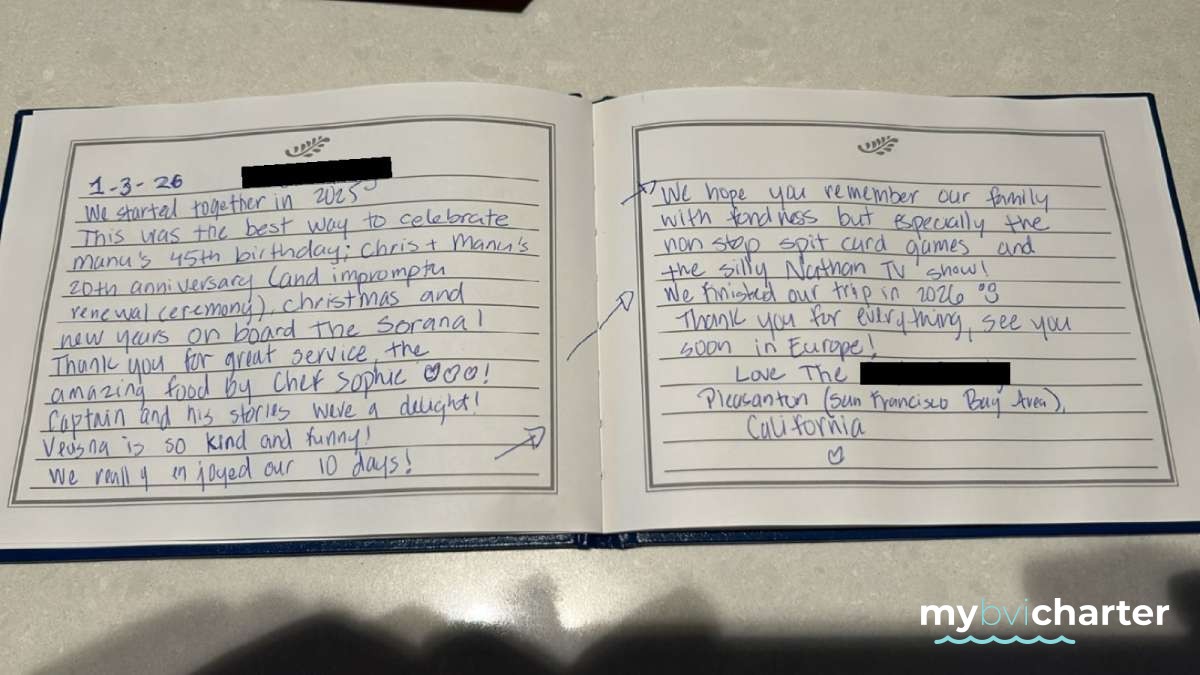 1-3-26
We started together in 2025
This was the best way to celebrate
Manu's 45th birthday; Chris + Manu's
20th anniversary (and impromptu
renewal ceremony), Christmas and
new years on board the Sorana!
Thank you for great service, the
amazing food by Chef Sophie ♡♡♡!
Captain and his stories were a delight!
Veasna is so kind and funny!
We really enjoyed our 10 days!
We hope you remember our family
with fondness but especially the
non stop spit card games and
the silly Nathan TV show!
We finished our trip in 2026
Thank you for everything, see you
soon in Europe!
Love The
Pleasanton (San Francisco Bay Area),
California
♡
mybvicharter